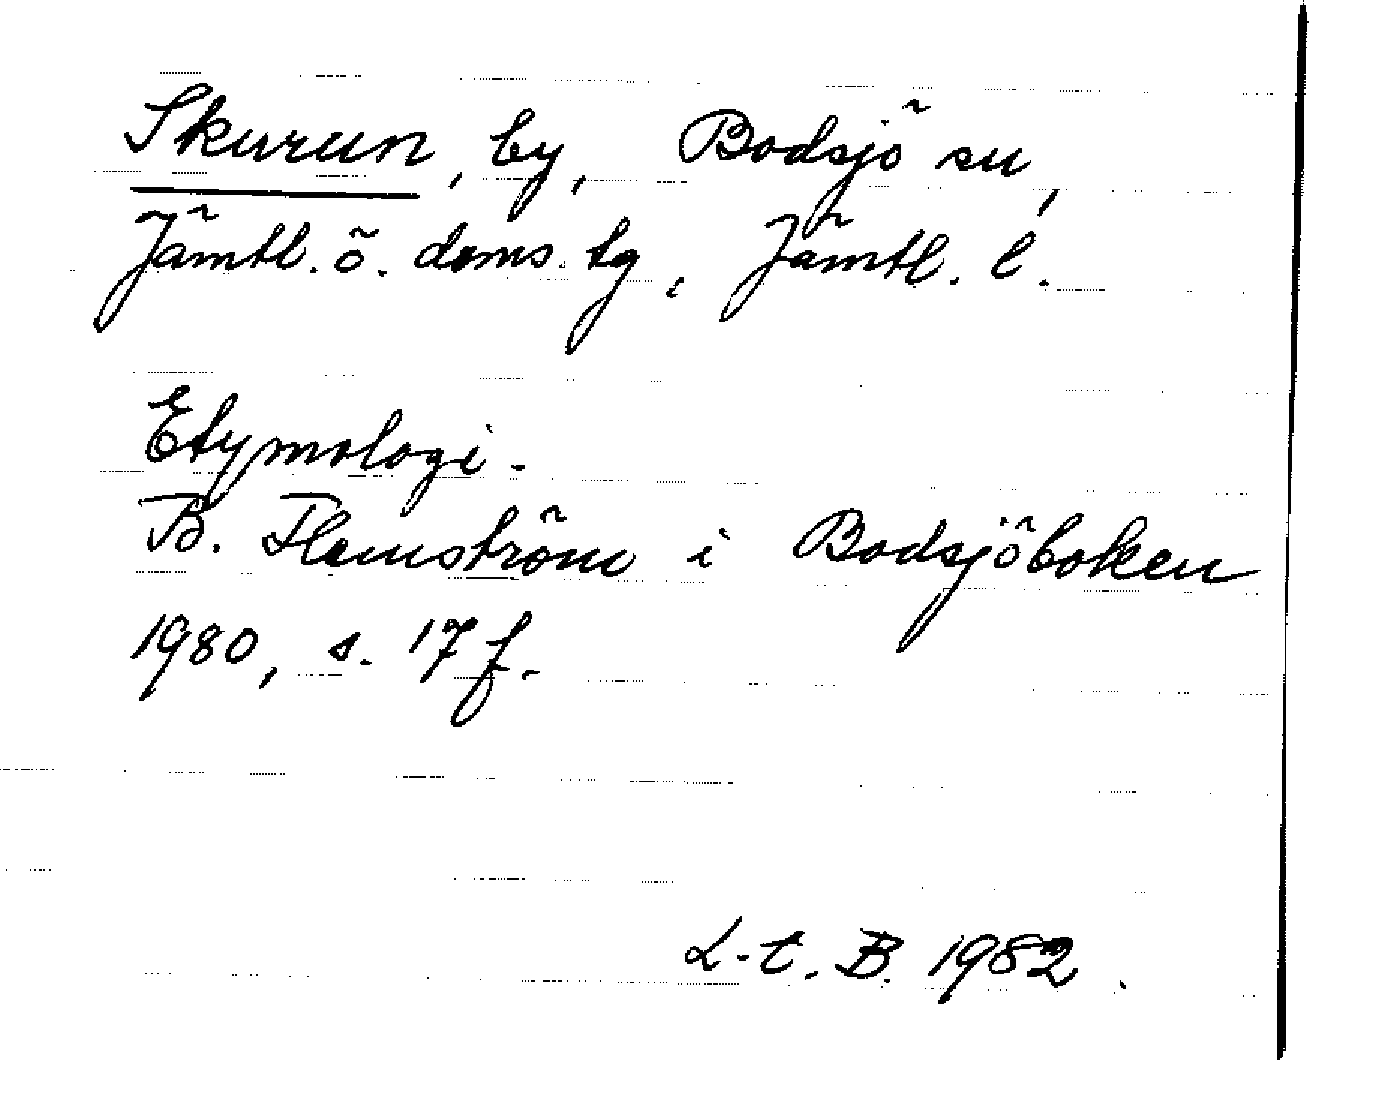 Skurun, by, Bodsjö sn,
Jämtl. ö. doms. tg, Jämtl. l.
Etymologi.
B. Flemström i Bodsjöboken
1980, s. 17 f.
L-t. B. 1982.